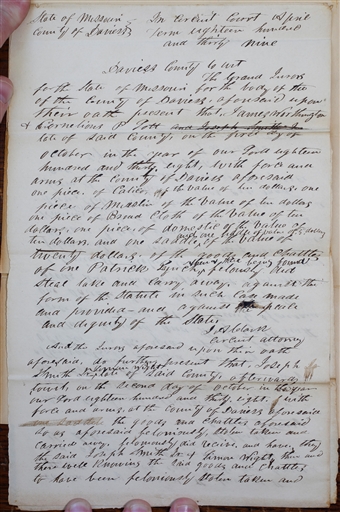 State of Missouri In Circuit Court April
County of Daviess term eighteen hundred
and thirty nine
Daviess County to wit
The Grand Jurors
for the State of Missouri for the body of the
of the County of Daviess aforesaid upon
their oath present that James Worthington
& Cornelious P Lott and Joseph Smith Jr
late of said County, on the day of
October in the year of our Lord eighteen
hundred and thirty eight, with force and
arms at the County of Daviess aforesaid
one piece of Calico, of the value of ten dollars, one
piece of Muslin of the Value of ten dollars
one piece of Broad Cloth of the Value of ten
dollars, one piece of domestic of the value of
ten dollars and one saddle of the value of
twenty dollars, of the goods and Chattles
of one Patrick Lynch then & there being found
feloniously did
steal take and carry away, against the
form of the Statute in such Case made
and provided and against the peace
and dignity of the State,
Circuit attorney
And the Jurors aforesaid upon their oath
aforesaid, do further present that, Joseph
Smith Jr Lyman Wight of said County, afterwards
towit, on the second day of October in the year
our Lord eighteen hundred and thirty eight, with
force and arms, at the County of Daviess aforesaid
the goods and Chattles aforesaid
so as aforesaid feloniously, stolen taken and
carried away, feloniously did receive and have, they
the said Joseph Smith Jr & Lyman Wight, then and
there well knowing the said goods and Chattles
to have been feloniously stolen taken and